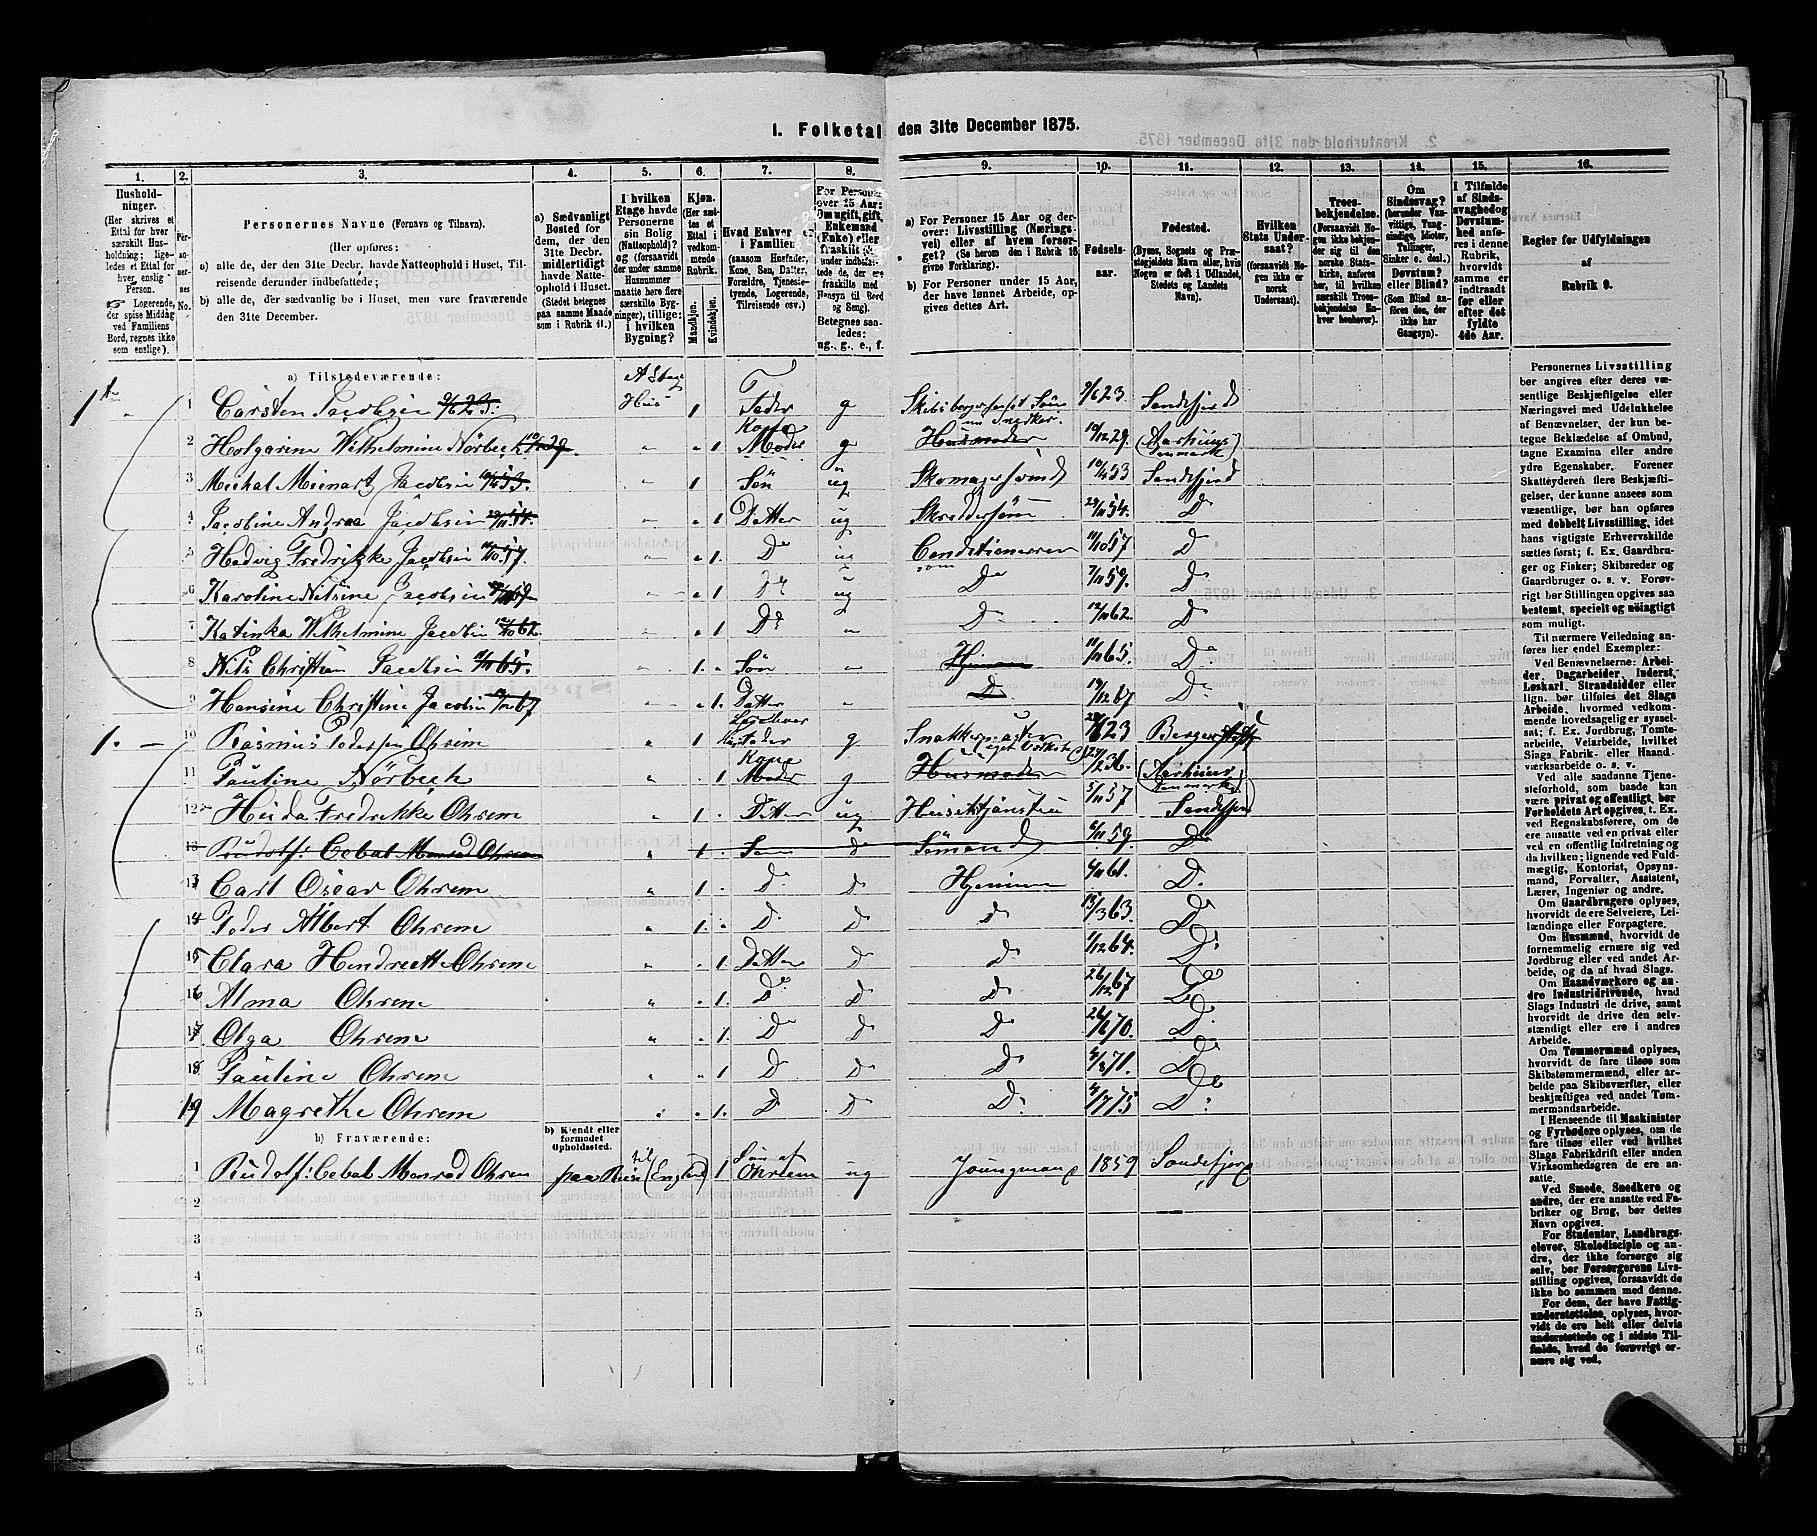 I. Folketal den 31te December 1875.
1. 2. 3. 4. 5. 6. 7. 8. 9. 10. 11. 12. 13. 14. 15. 16.
Husholdninger. (Her skrives et Ettal for hver særskilt Husholdning; ligeledes et Ettal for hver enslig Person. Logerende, der spise Middag ved Familiens Bord, regnes ikke som enslige).
Personernes No.
Personernes Navne (Fornavn og Tilnavn).
(Her opføres:
a) alle de, der den 31te Decbr. havde Natteophold i Huset, Tilreisende derunder indbefattede;
b) alle de, der sædvanlig bo i Huset, men vare fraværende den 31te December.
a) Sædvanligt Bosted for dem, der den 31te Decbr. midlertidigt havde Natteophold i Huset. (Stedet betegnes paa samme Maade som i Rubrik 11.)
I hvilken Etage havde Personerne sin Bolig (Natteophold)? og (forsaavidt der under samme Husnummer maatte høre flere særskilte Bygninger), tillige: i hvilken Bygning?
Kjøn. (Her sættes et Ettal i vedkommende Rubrik.
Mandkjøn. Kvindekjøn.
Hvad Enhver er i Familien (saasom Husfader, Kone, Søn, Datter, Forældre, Tjenestetyende, Logerende, Tilreisende osv.)
For Personer over 15 Aar: Om ugift, gift, Enkemand (Enke) eller fraskilt
Betegnes saaledes: ug., g., e., f.
a) For Personer 15 Aar og derover: Livsstilling (Næringsvei) eller af hvem forsørget? (Se herom den i Rubrik 16 givne Forklaring).
b) For Personer under 15 Aar, der have lønnet Arbeide, opgives dettes Art.
Fødselsaar.
Fødested. (Byens, Sognets og Præstegjeldets Navn eller, hvis Nogen er født i Udlandet, Stedets og Landets Navn).
Hvilken Stats Undersaat? (forsaavidt Nogen ikke er norsk Undersaat).
Troesbekjendelse. (Forsaavidt Nogen ikke bekjender sig til den norske Statskirke, anføres her, til hvilken særskilt Troesbekjendelse Enhver henhører).
Om Sindssvag? (herunder Vanvittige, Tungsindige, Idioter, Tullinger, Sinker o. desl.) Døvstum? eller Blind? (Som Blind anføres den, der ikke har Gangsyn).
I Tilfælde af Sindssvaghed og Døvstumhed anføres i denne Rubrik, hvorvidt samme er indtraadt før eller efter det fyldte 4de Aar.
Regler for Udfyldningen af Rubrik 9.
a) Tilstedeværende:
1 Carsten Jacobsen 9/6 23. Hus 1 Fader g 9/6 23. Sandefjord
2 Holgarine Wilhelmine Nörbech 10/12 29. 1 Kone Moder g Husmoder 10/12 29. (Aarhuus Denmark)
3 Mickal Meinart Jacobsen Sön ug Skomagersvend 10/4 53 Sandefjord
4 Jacobine Andrea Jacobsen 1 Datter ug 29/11 54. D
5 Hedvig Fredrikke Jacobsen 11/10 57. 1. Do ug 11/10 57. D
6 Karoline Nilsine Jacobsen 1 Do ug Do 7/11 59. D
7 Katinka Wilhelmine Jacobsen 12/10 62 1 Do Do 12/10 62. D
8 Nils Christian Jacobsen 11/11 65. 1. Sön 11/11 65. Do
9 Hansine Christine Jacobsen 1. Datter D 19/12 67 Do
1. 10 Rasmus Pedersen Ohrem 1 Fader g
11 Pauline Nörbech 1 Kone Moder g Husmoder (Aarhuus Denmark)
12 Hulda Fredrikke Ohrem 1 Datter ug 5/11 57
13 Rudolf: Cebal Monrad Ohrem 1. Sön Do Sömand 6/11 59. Do
13 Carl Oscar Ohrem 1. D. D Hjemme 4/11 61. D.
14 Peder Albert Ohrem 1. D. D D 13/3 63. Do
15 Clara Hendriette Ohrem 1. Datter D D 1/12 64. D.
16 Alma Ohrem 1. Do D Do 26/12 67 Do
17 Olga Ohrem 1. D D Do 26/6 70. D.
18 Pauline Ohrem 1 D D Do D
19 Magrethe Ohrem 1. D D D. D.
b) Fraværende:
b) Kjendt eller formodet Opholdssted.
1 Rudolf: Cebal Monrad Ohrem paa Reise til (England) 1 Sön af Ohrem ug Joungmand 1859 Sandefjord
2
3
4
5
6
Personernes Livsstilling bør angives efter deres væsentlige Beskjæftigelse eller Næringsvei med Udelukkelse af Benævnelser, der kun betegne Beklædelse af Ombud, tagne Examina eller andre ydre Egenskaber. Forener Skatteyderen flere Beskjæftigelser, der kunne ansees som væsentlige, bør han opføres med dobbelt Livsstilling, idet hans vigtigste Erhvervskilde sættes først; f. Ex. Gaardbruger og Fisker; Skibsreder og Gaardbruger o. s. v. Forøvrigt bør Stillingen opgives saa bestemt, specielt og nøiagtigt som muligt.
Til nærmere Veiledning anføres her endel Exempler:
Ved Benævnelserne: Arbeider, Dagarbeider, Inderst, Løskarl, Strandsidder eller lign. bør tilføies det Slags Arbeide, hvormed vedkommende hovedsagelig er sysselsat; f. Ex. Jordbrug, Tomtearbeide, Veiarbeide, hvilket Slags Fabrik- eller Haandværksarbeide o. s. v.
Ved alle saadanne Tjenesteforhold, som baade kan være privat og offentligt, bør Forholdets Art opgives, t. Ex. ved Regnskabsførere, om de ere ansatte ved en privat eller ved en offentlig Indretning og da hvilken; lignende ved Fuldmægtig, Kontorist, Opsynsmand, Forvalter, Assistent, Lærer, Ingeniør og andre.
Om Gaardbrugere oplyses, hvorvidt de ere Selveiere, Leilændinge eller Forpagtere.
Om Husmænd, hvorvidt de fornemmelig ernære sig ved Jordbrug eller ved andet Arbeide, og da af hvad Slags.
Om Haandværkere og andre Industridrivende, hvad Slags Industri de drive, samt hvorvidt de drive den selvstændigt eller ere i andres Arbeide.
Om Tømmermænd oplyses, hvorvidt de fare tilsøs som Skibstømmermænd, eller arbeide paa Skibsværfter, eller beskjæftiges ved andet Tømmermandsarbeide.
I Henseende til Maskinister og Fyrbødere oplyses, om de fare tilsøs eller ved hvilket Slags Fabrikdrift eller anden Virksomhedsgren de ere ansatte.
Ved Smede, Snedkere og andre, der ere ansatte ved Fabriker og Brug, bør dettes Navn opgives.
For Studenter, Landbrugselever, Skoledisciple og andre, der ikke forsørge sig selv, bør Forsørgerens Livsstilling opgives, forsaavidt de ikke bo sammen med denne.
For dem, der have Fattigunderstøttelse, oplyses, hvorvidt de ere helt eller delvis understøttede og i sidste Tilfælde, hvad de forøvrigt ernære sig ved.